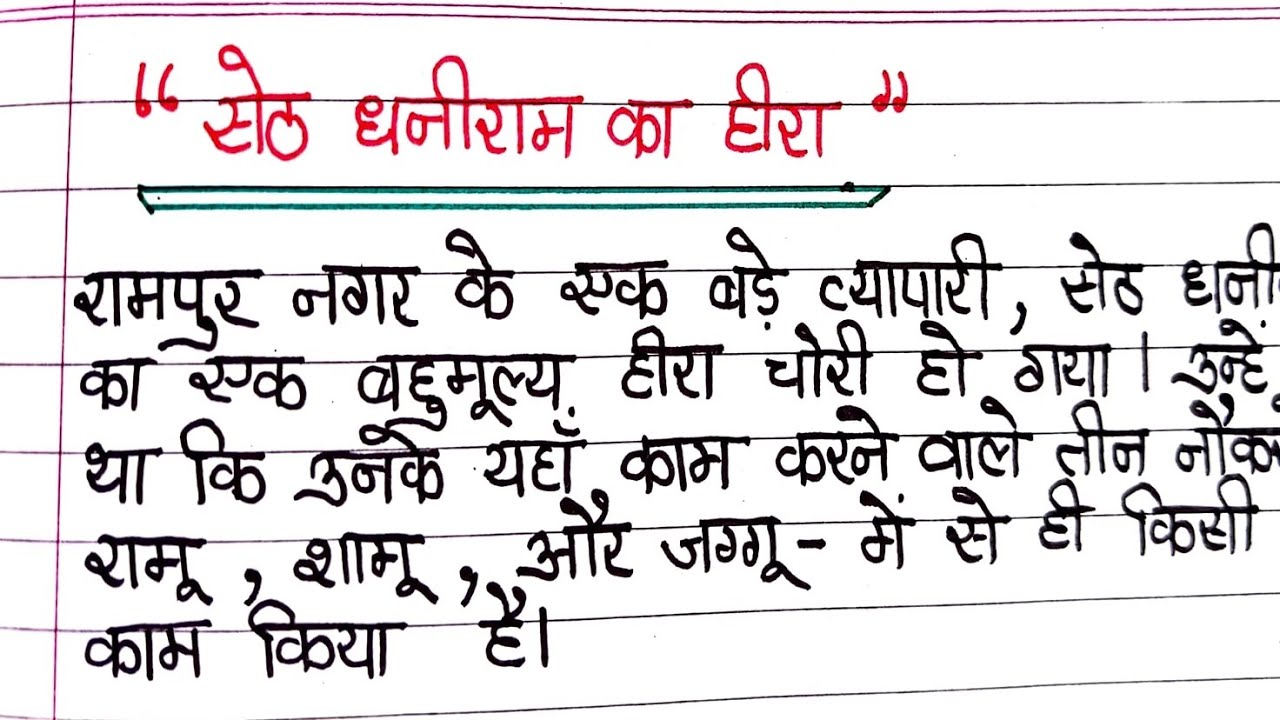 “ सेठ धनीराम का हीरा ”
रामपुर नगर के एक बड़े व्यापारी, सेठ धनी
का एक बहुमूल्य हीरा चोरी हो गया। उन्हें
था कि उनके यहाँ काम करने वाले तीन नौक
रामू, शामू, और जग्गू - में से ही किसी
काम किया है।